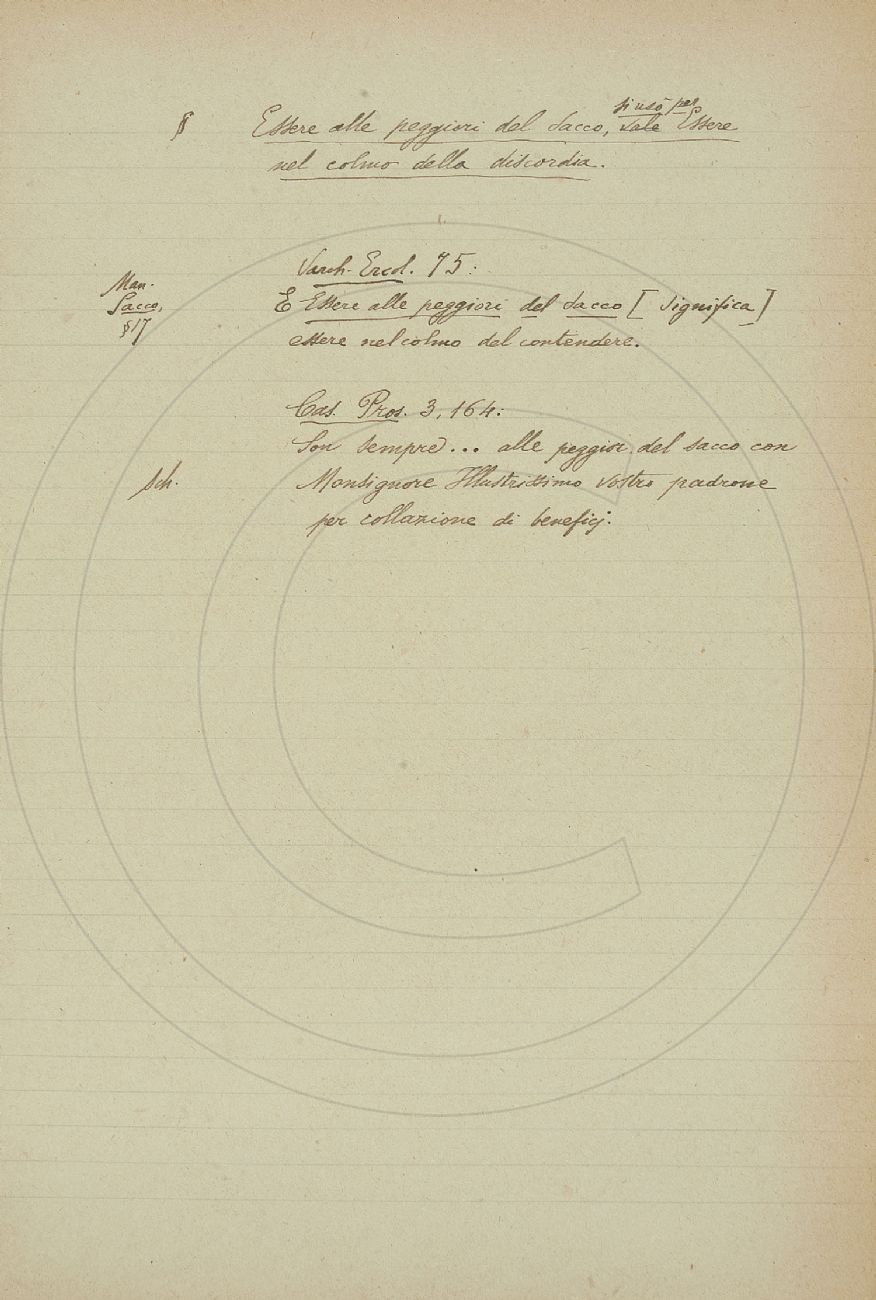 si usò per
§ Essere alle peggiori del Sacco, vale Essere
nel colmo della discordia.
Varch. Ercol. 75:
Man.
Sacco,
§17
E Essere alle peggiori del Sacco [significa]
essere nel colmo del contendere.
Cas. Pros. 3, 164:
Son sempre... alle peggior del sacco con
Sch.
Monsignore Illustrissimo vostro padrone
per collazione di beneficj.